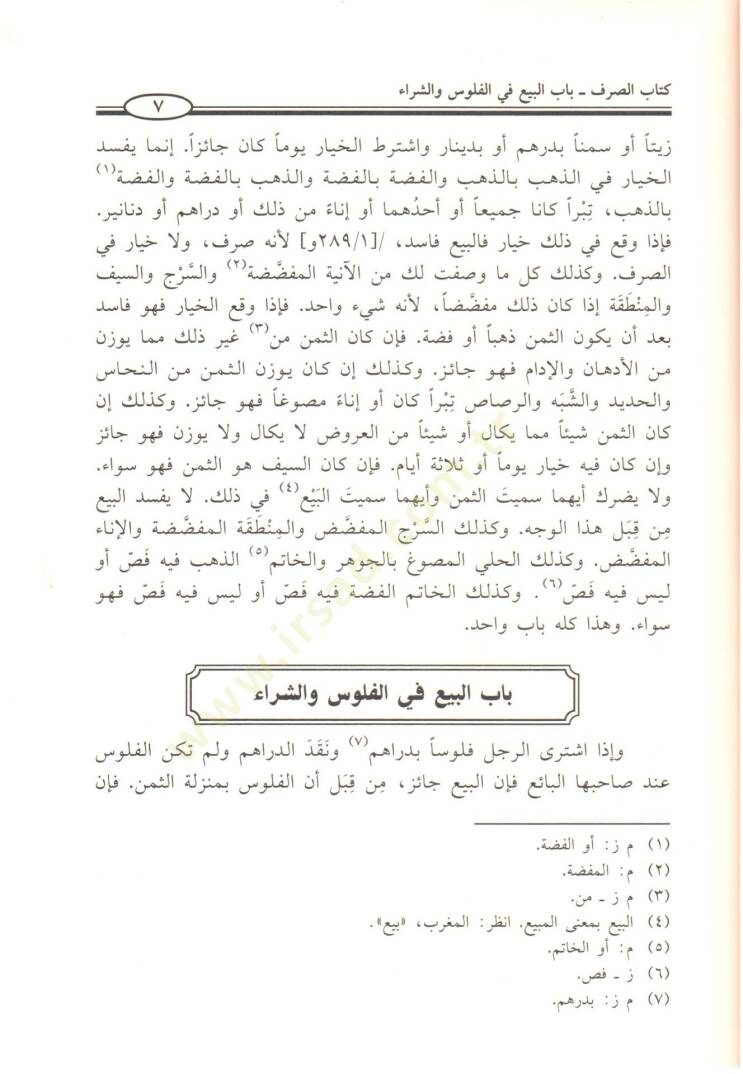 كتاب الصرف - باب البيع في الفلوس والشراء
٧
زيتاً أو سمناً بدرهم أو بدينار واشترط الخيار يوماً كان جائزاً. إنما يفسد
الخيار في الذهب بالذهب والفضة بالفضة والذهب بالفضة والفضة(١)
بالذهب، تِبْراً كانا جميعاً أو أحدُهما أو إناءً من ذلك أو دراهم أو دنانير.
فإذا وقع في ذلك خيار فالبيع فاسد، /[٢٨٩/١و] لأنه صرف، ولا خيار في
الصرف. وكذلك كل ما وصفت لك من الآنية المفضَّضة(٢) والسَّرْج والسيف
والمِنْطَقَة إذا كان ذلك مفضَّضاً، لأنه شيء واحد. فإذا وقع الخيار فهو فاسد
بعد أن يكون الثمن ذهباً أو فضة. فإن كان الثمن من(٣) غير ذلك مما يوزن
من الأدهان والإدام فهو جائز. وكذلك إن كان يوزن الثمن من النحاس
والحديد والشَّبَه والرصاص تِبْراً كان أو إناءً مصوغاً فهو جائز. وكذلك إن
كان الثمن شيئاً مما يكال أو شيئاً من العروض لا يكال ولا يوزن فهو جائز
وإن كان فيه خيار يوماً أو ثلاثة أيام. فإن كان السيف هو الثمن فهو سواء.
ولا يضرك أيهما سميتَ الثمن وأيهما سميتَ البَيْع(٤) في ذلك. لا يفسد البيع
مِن قِبَل هذا الوجه. وكذلك السَّرْج المفضَّض والمِنْطَقَة المفضَّضة والإناء
المفضَّض. وكذلك الحلي المصوغ بالجوهر والخاتم(٥) الذهب فيه فَصّ أو
ليس فيه فَصّ(٦). وكذلك الخاتم الفضة فيه فَصّ أو ليس فيه فَصّ فهو
سواء. وهذا كله باب واحد.
باب البيع في الفلوس والشراء
وإذا اشترى الرجل فلوساً بدراهم(٧) ونَقَدَ الدراهم ولم تكن الفلوس
عند صاحبها البائع فإن البيع جائز، مِن قِبَل أن الفلوس بمنزلة الثمن. فإن
(١) م ز: أو الفضة.
(٢) م: المفضة.
(٣) م ز - من.
(٤) البيع بمعنى المبيع. انظر: المغرب، «بيع».
(٥) م: أو الخاتم.
(٦) ز - فص.
(٧) م ز: بدرهم.
www.irsad.com.tr